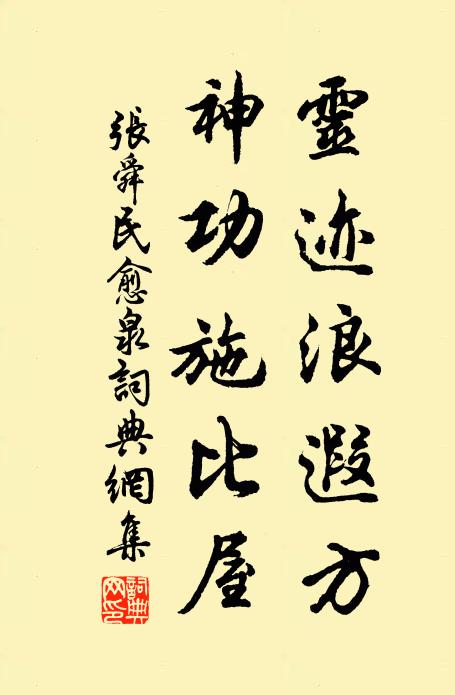 靈迹浪遐方
神功施比屋
張舜民愈泉詞典網集
詞典網印